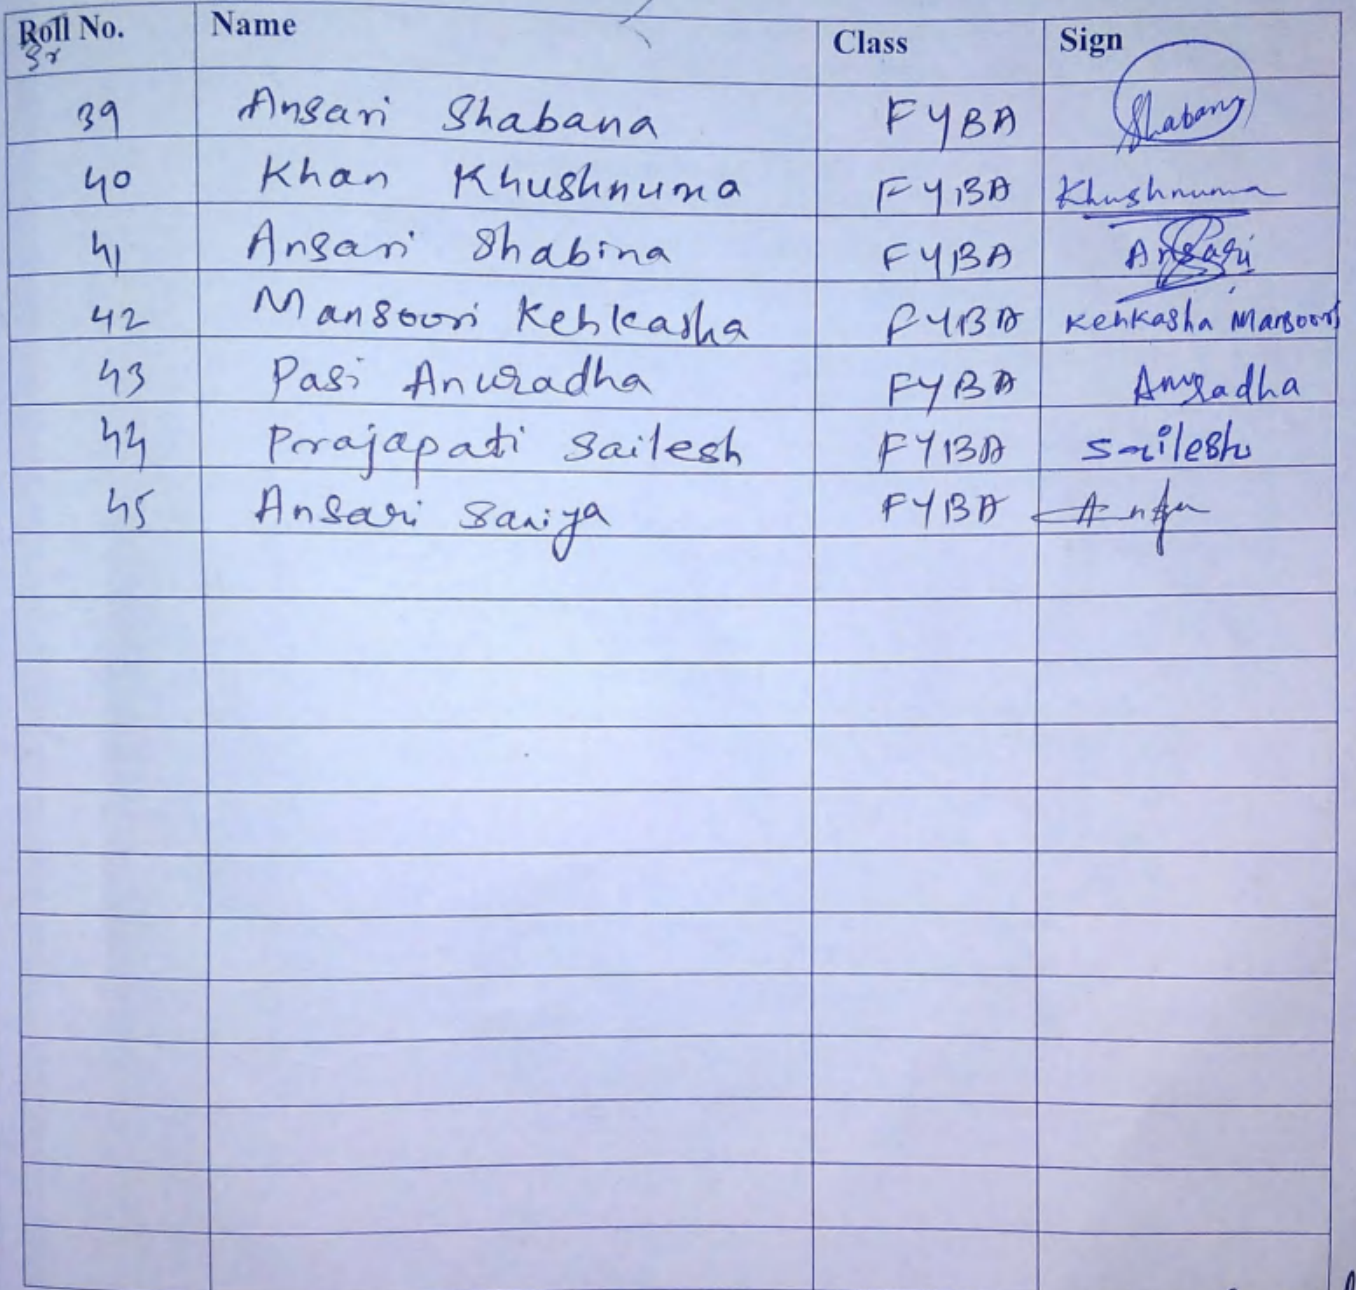 Roll No. Name Class Sign
Sr
39 Ansari Shabana FYBA Shabana
40 Khan Khushnuma FYBA Khushnuma
41 Ansari Shabina FYBA Ansari
42 Mansoori Kehkasha FYBA Kehkasha Mansoori
43 Pasi Anuradha FYBA Anuradha
44 Prajapati Sailesh FYBA Sailesh
45 Ansari Saniya FYBA